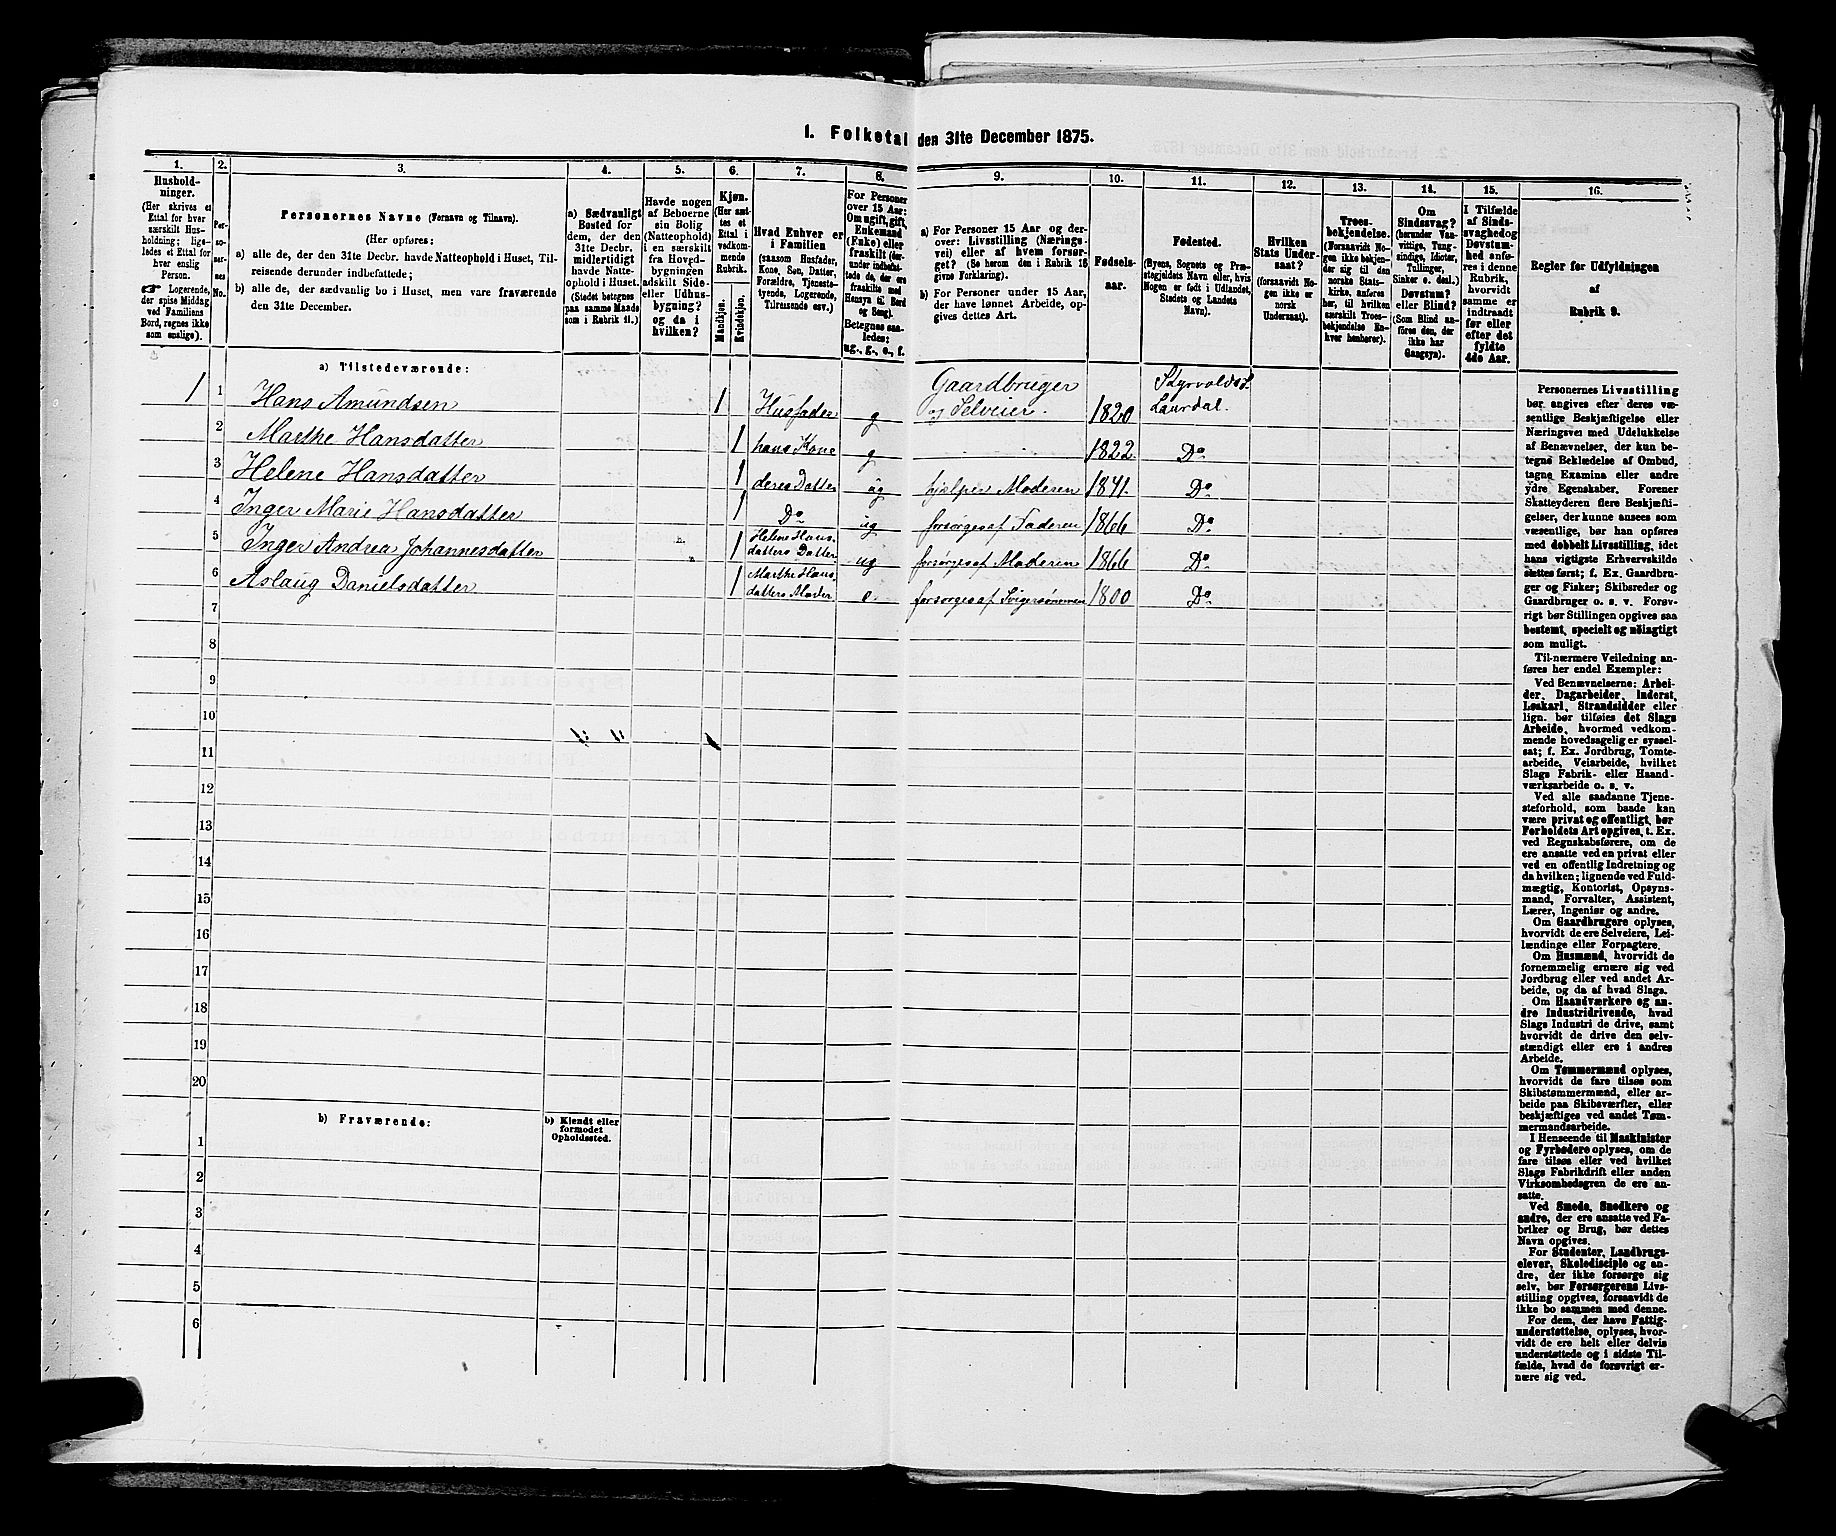 1. Folketal den 31te December 1875.
1.
2.
3.
4.
5.
6.
7.
8.
9.
10.
11.
12.
13.
14.
15.
16.
Hushold-
ninger.
(Her skrives et
Ettal for hver
særskilt Hus-
holdning; lige-
ledes et Ettal for
hver enslig
Person.
☞ Logerende,
der spise Middag
ved Familiens
Bord, regnes ikke
som enslige).
Personernes No.
Personernes Navne (Fornavn og Tilnavn).
(Her opføres:
a) alle de, der den 31te Decbr. havde Natteophold i Huset, Til-
reisende derunder indbefattede;
b) alle de, der sædvanlig bo i Huset, men vare fraværende
den 31te December.
a) Sædvanligt
Bosted for
dem, der den
31te Decbr.
midlertidigt
havde Natte-
ophold i Huset.
(Stedet betegnes
paa samme Maade
som i Rubrik 11.)
Havde nogen
af Beboerne
sin Bolig
(Natteophold)
i en særskilt
fra Hoved-
bygningen
adskilt Side-
eller Udhus-
bygning?
og da i
hvilken?
Kjøn.
(Her sæt-
tes et
Ettal i
vedkom-
mende
Rubrik.
Mandkjøn.
Kvindekjøn.
Hvad Enhver er
i Familien
(saasom Husfader,
Kone, Søn, Datter,
Forældre, Tjeneste-
tyende, Logerende,
Tilreisende osv.)
For Personer
over 15 Aar:
Om ugift, gift,
Enkemand
(Enke) eller
fraskilt (der-
under indbefat-
tede de, der ere
fraskilte med
Hensyn til Bord
og Seng).
Betegnes saa-
ledes:
ug., g., e., f.
a) For Personer 15 Aar og der-
over: Livsstilling (Nærings-
vei) eller af hvem forsør-
get? (Se herom den i Rubrik 16
givne Forklaring).
b) For Personer under 15 Aar,
der have lønnet Arbeide, op-
gives dettes Art.
Fødsels-
aar.
Fødested.
(Byens, Sognets og Præ-
stegjeldets Navn eller, hvis
Nogen er født i Udlandet,
Stedets og Landets
Navn).
Hvilken
Stats Under-
saat?
(forsaavidt No-
gen ikke er
norsk
Undersaat).
Troes-
bekjendelse.
(Forsaavidt No-
gen ikke bekjen-
der sig til den
norske Stats-
kirke, anføres
her, til hvilken
særskilt Troes-
bekjendelse En-
hver henhører).
Om
Sindssvag?
(herunder Van-
vittige, Tung-
sindige, Idioter,
Tullinger,
Sinker o. desl.)
Døvstum?
eller Blind?
(Som Blind an-
føres den, der
ikke har
Gangsyn).
I Tilfælde
af Sinds-
svaghed og
Døvstum-
hed anfø-
res i denne
Rubrik,
hvorvidt
samme er
indtraadt
før eller
efter det
fyldte
4de Aar.
Regler for Udfyldningen
af
Rubrik 9.
a) Tilstedeværende:
1 1 Hans Amundsen 1 Husfader g Gaardbruger og Selveier. 1820 Styrvolds S. Laurdal.
2 Marthe Hansdatter 1 hans Kone g 1822 Do
3 Helene Hansdatter 1 deres Datter ug hjelper Moderen 1841. Do
4 Inger Marie Hansdatter 1 Do ug forsørges af Faderen 1866 Do
5 Inger Andrea Johannesdatter 1 Helene Hans- datters Datter ug forsørges af Moderen 1866 Do
6 Aslaug Danielsdatter 1 Marthe Hans- datters Moder e. forsorges af Svigersønnen 1800 Do
7
8
9
10
11
12
13
14
15
16
17
18
19
20
b) Fraværende:
b) Kjendt eller
formodet
Opholdssted.
1
2
3
4
5
6
Personernes Livsstilling
bør angives efter deres væ-
sentlige Beskjæftigelse eller
Næringsvei med Udelukkelse
af Benævnelser, der kun be-
tegne Beklædelse af Ombud,
tagne Examina eller andre
ydre Egenskaber. Forener
Skatteyderen flere Beskjæfti-
gelser, der kunne ansees som
væsentlige, bør han opføres
med dobbelt Livsstilling, idet
hans vigtigste Erhvervskilde
sættes først; f. Ex. Gaardbru-
ger og Fisker; Skibsreder og
Gaardbruger o. s. v. Forøv-
rigt bør Stillingen opgives saa
bestemt, specielt og nøiagtigt
som muligt.
Til nærmere Veiledning an-
føres her endel Exempler:
Ved Benævnelserne: Arbei-
der, Dagarbeider, Inderst,
Løskarl, Strandsidder eller
lign. bør tilføies det Slags
Arbeide, hvormed vedkom-
mende hovedsagelig er syssel-
sat; f. Ex. Jordbrug, Tomte-
arbeide, Veiarbeide, hvilket
Slags Fabrik- eller Haand-
værksarbeide o. s. v.
Ved alle saadanne Tjene-
steforhold, som baade kan
være privat og offentligt, bør
Forholdets Art opgives, t. Ex.
ved Regnskabsførere, om de
ere ansatte ved en privat eller
ved en offentlig Indretning og
da hvilken; lignende ved Fuld-
mægtig, Kontorist, Opsyns-
mand, Forvalter, Assistent,
Lærer, Ingeniør og andre.
Om Gaardbrugere oplyses,
hvorvidt de ere Selveiere, Lei-
lændinge eller Forpagtere.
Om Husmænd, hvorvidt de
fornemmelig ernære sig ved
Jordbrug eller ved andet Ar-
beide, og da af hvad Slags.
Om Haandværkere og an-
dre Industridrivende, hvad
Slags Industri de drive, samt
hvorvidt de drive den selv-
stændigt eller ere i andres
Arbeide.
Om Tømmermænd oplyses,
hvorvidt de fare tilsøs som
Skibstømmermænd, eller ar-
beide paa Skibsværfter, eller
beskjæftiges ved andet Tøm-
mermandsarbeide.
I Henseende til Maskinister
og Fyrbødere oplyses, om de
fare tilsøs eller ved hvilket
Slags Fabrikdrift eller anden
Virksomhedsgren de ere an-
satte.
Ved Smede, Snedkere og
andre, der ere ansatte ved Fa-
briker og Brug, bør dettes
Navn opgives.
For Studenter, Landbrugs-
elever, Skoledisciple og an-
dre, der ikke forsørge sig
selv, bør Forsørgerens Livs-
stilling opgives, forsaavidt de
ikke bo sammen med denne.
For dem, der have Fattig-
understøttelse, oplyses, hvor-
vidt de ere helt eller delvis
understøttede og i sidste Til-
fælde, hvad de forøvrigt er-
nære sig ved.